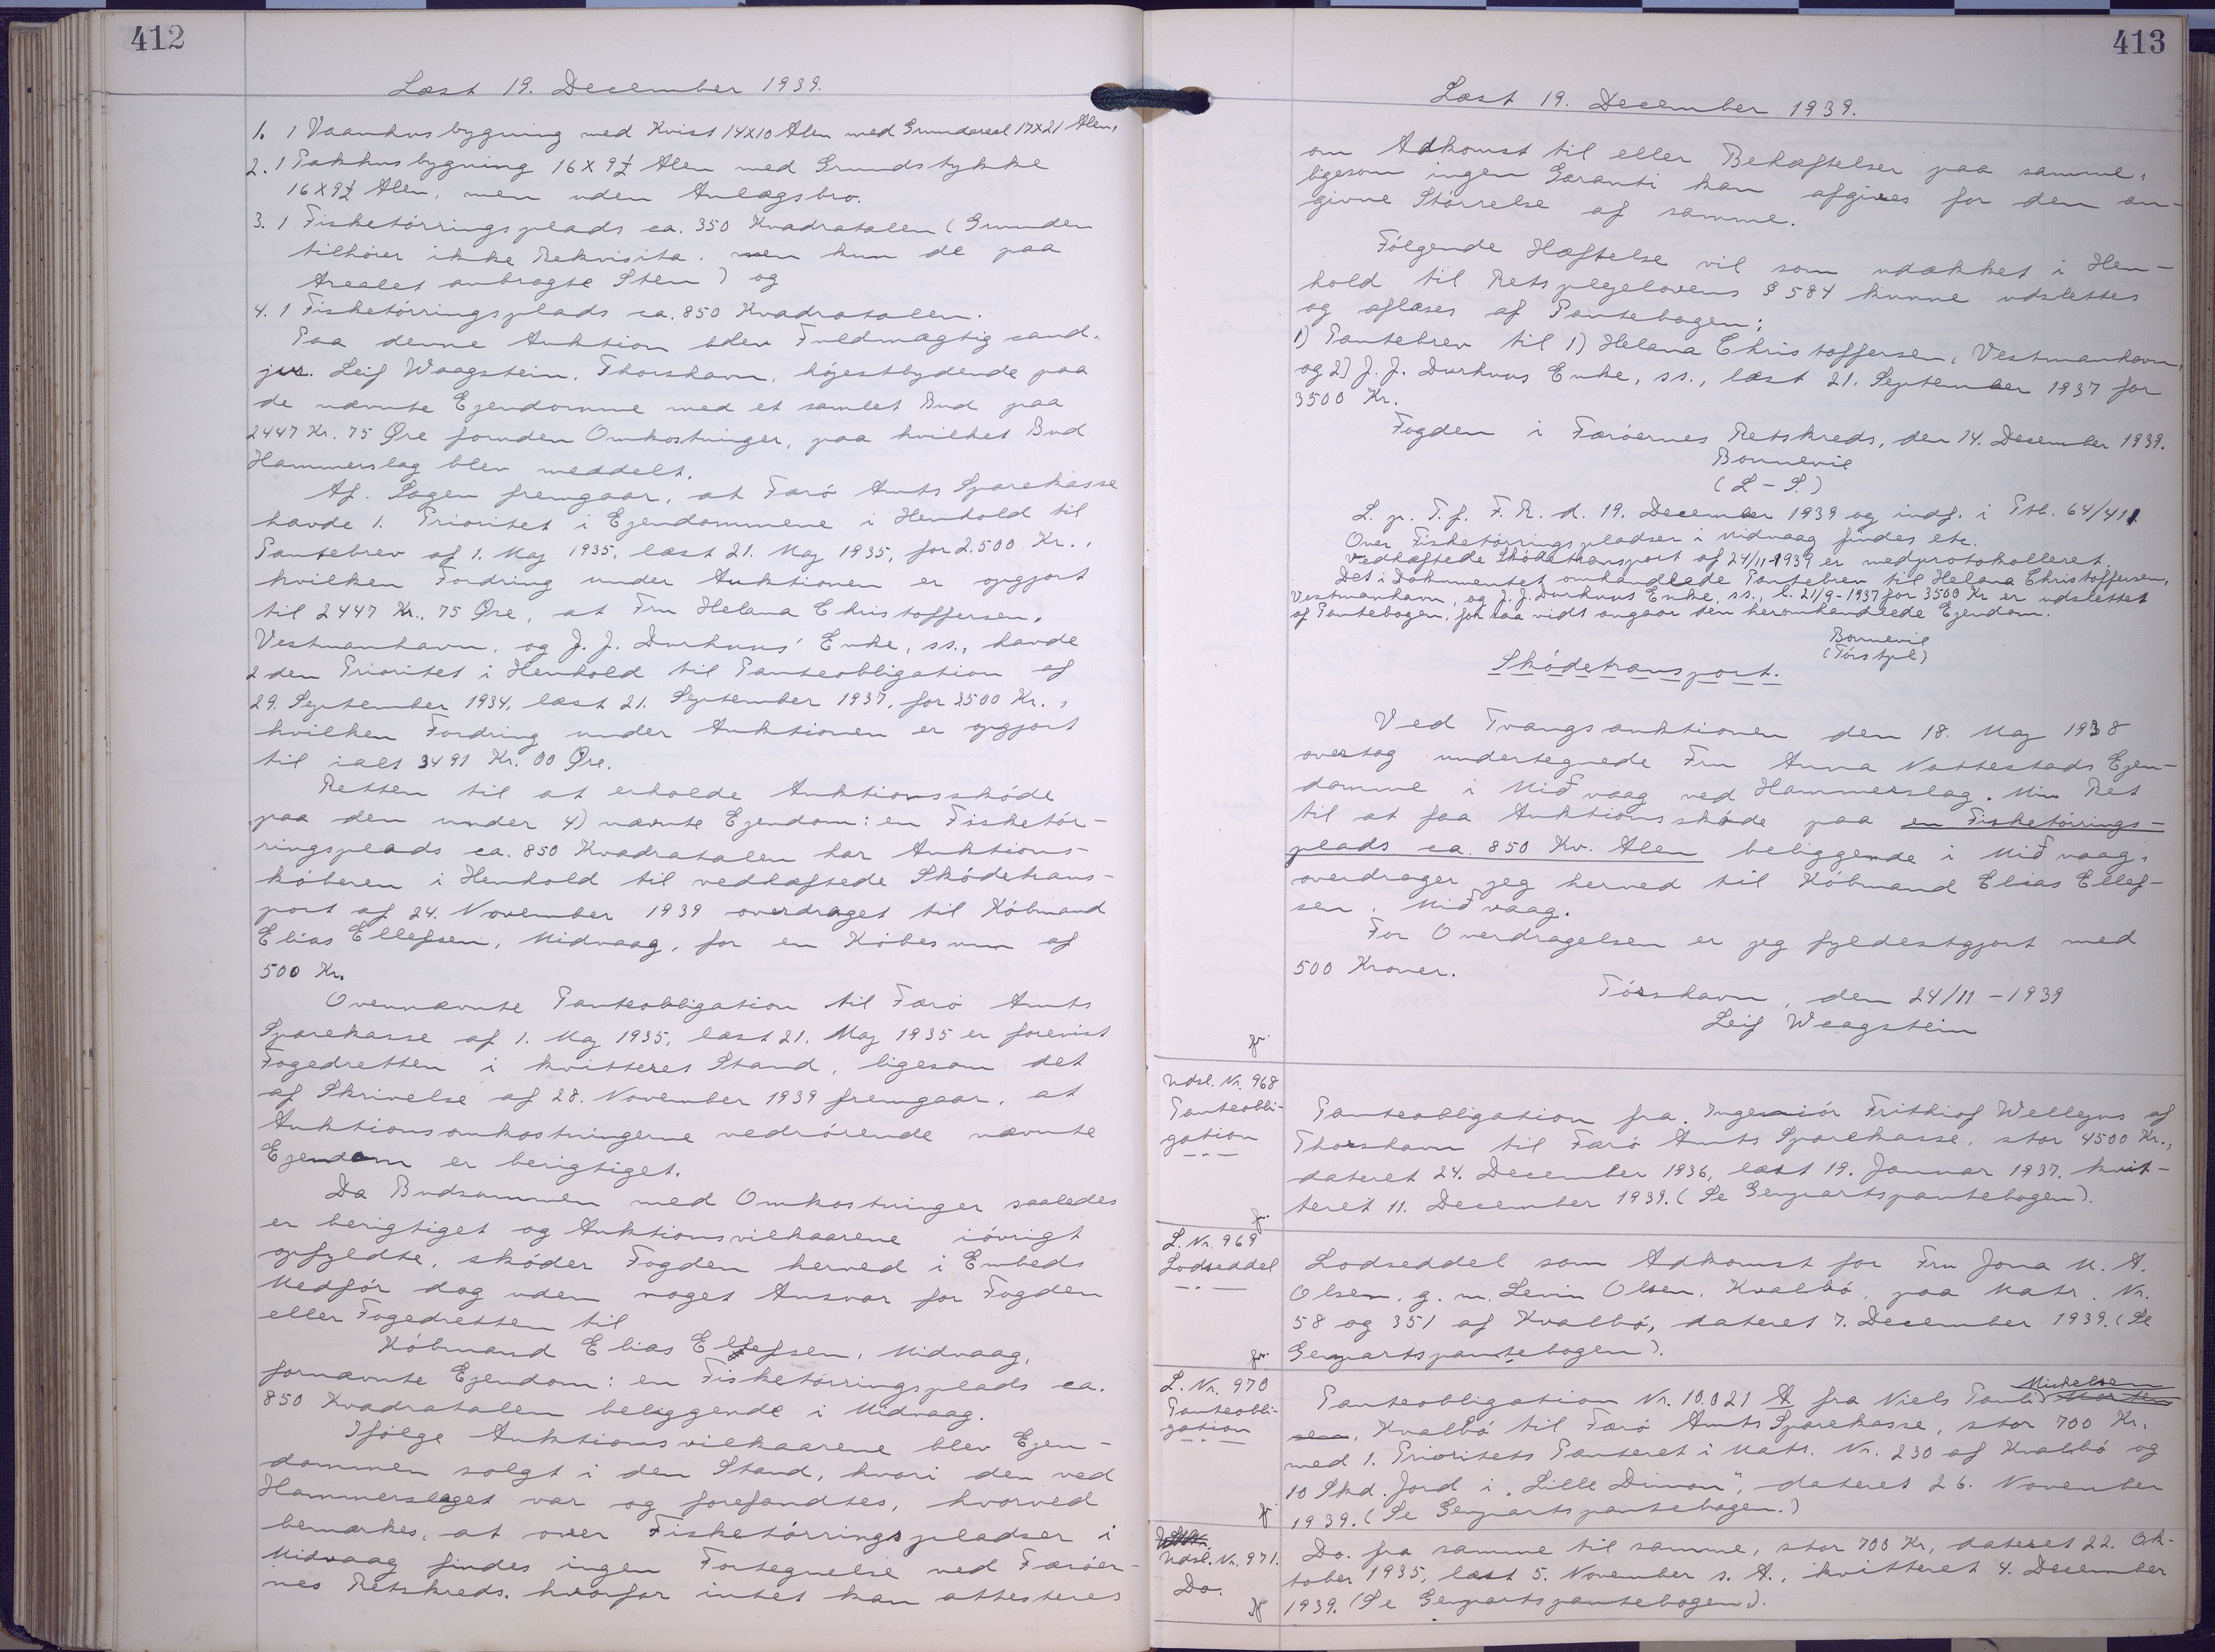 412
Læst 19. December 1939.
1. 1 Vaanhusbygning med Kvist 14x10 Alen med Grundareal 17x21 Alen,
2. 1 Pakhusbygning 16 x 9½ Alen med Grundstykke
16x9½ Alen, men uden Anlægsbro.
3. 1 Fisketórringsplads ca. 350 Kvadratalen (Grunden
tilhører ikke Rekvisita. men kun de paa
Arealet anbragte Sten) og
4. 1 Fisketórringsplads ca. 850 Kvadratalen.
Paa denne Auktion blev Fuldmægtig cand.
jur. Leif Waagstein, Thorshavn, højestbydende paa
de nævnte Ejendomme med et samlet Bud paa
2447 Kr. 75 Øre foruden Omkostninger, paa hvilket Bud
Hammerslag blev meddelt.
Af. Sagen fremgaar, at Færó Amts Sparekasse
havde 1. Prioritet i Ejendommene i Henhold til
Pantebrev af 1. Maj 1935, læst 21. Maj 1935, for 2.500 Kr.,
hvilken Fordring under Auktionen er opgjort
til 2447 Kr. 75 Øre, at Fru Helena Christoffersen,
Vestmanhavn, og J. J. Durhuus' Enke, ss., havde
2den Prioritet i Henhold til Panteobligation af
29. September 1934, læst 21. September 1937, for 3500 Kr.,
hvilken Fordring under Auktionen er opgjort
til ialt 3491 Kr. 00 Øre.
Retten til at erholde Auktionsskóde
paa den under 4) nævnte Ejendom: en Fisketór-
ringsplads ca. 850 Kvadratalen har Auktions-
kóberen i Henhold til vedhæftede Skódetrans-
port af 24. November 1939 overdraget til Kóbmand
Elias Ellefsen, Midvaag, for en Kóbesum af
500 Kr.
Ovennævnte Panteobligation til Færó Amts
Sparekasse af 1. Maj 1935, læst 21. Maj 1935 er forevist
Fogedretten i kvitteret Stand, ligesom det
af Skrivelse af 28. November 1939 fremgaar, at
Auktionsomkostningerne vedrórende nævnte
Ejendom er berigtiget.
Da Budsummen med Omkostninger saaledes
er berigtiget og Auktionsvilkaarene ióvrigt
opfyldte, skóder Fogden herved i Embeds
Medfór dog uden noget Ansvar for Fogden
eller Fogedretten til
Kóbmand Elias Ellefsen, Midvaag,
fornævnte Ejendom: en Fisketórringsplads ca.
850 Kvadratalen beliggende i Midvaag.
Ifólge Auktionsvilkaarene blev Ejen-
dommen solgt i den Stand, hvori den ved
Hammerslaget var og forefandtes, hvorved
bemærkes, at over Fisketórringspladser i
Midvaag findes ingen Fortegnelse ved Færóer-
nes Retskreds. hvorfor intet kan attesteres
413
Læst 19. December 1939.
om Adkomst til eller Behæftelser paa samme,
ligesom ingen Garanti kan afgives for den an-
givne Stórrelse af samme.
Fólgende Hæftelse vil som udækket i Hen-
hold til Retsplejelovens § 584 kunne udslettes
og aflæses af Pantebogen:
1) Pantebrev til 1) Helena Christoffersen, Vestmanhavn,
og 2) J. J. Durhuus Enke, ss., læst 21. September 1937 for
3500 Kr.
Fogden i Færóernes Retskreds, den 14. December 1939.
Bonnevie
(L-S.)
L. p. T. f. F. R. d. 19. December 1939 og indf. i Ptb. 64/411
Over Fisketórringspladser i Midvaag findes etc.
Vedhæftede Skódetransport af 24/11-1939 er medprotokolleret.
Det i Dokumentet omhandlede Pantebrev til Helena Christoffersen,
Vestmanhavn, og J. J. Durhuus Enke, ss., l. 21/9-1937 for 3500 Kr er udslettet
af Pantebogen, for saa vidt angaar den heromhandlede Ejendom.
Bonnevie
Skódetransport.
Ved Tvangsauktionen den 18. Maj 1938
overtog undertegnede Fru Anna Nattestads Ejen-
domme i Miðvaag ved Hammerslag. Min Ret
til at faa Auktionsskóde paa en Fisketórrings-
plads ca. 850 Kv. Alen beliggende i Miðvaag,
overdrager jeg herved til Kóbmand Elias Ellef-
sen, Miðvaag.
For Overdragelsen er jeg fyldestgjort med
500 Kroner.
Tórshavn, den 24/11-1939
Leif Waagstein
Udsl. Nr. 968
Panteobli-
gation
Panteobligation fra Ingeniór Frithiof Wellejus af
Thorshavn til Færó Amts Sparekasse, stor 4500 Kr.,
dateret 24. December 1936, læst 19. Januar 1937. kvit-
teret 11. December 1939. (Se Genpartspantebogen).
L. Nr. 969
Lodseddel
Lodseddel som Adkomst for Fru Jona M. A.
Olsen, g. m. Levin Olsen, Kvalbó, paa Matr. Nr.
58 og 351 af Kvalbó, dateret 7. December 1939. (Se
Genpartspantebogen).
L. Nr. 970
Panteobli-
gation
Panteobligation Nr. 10.021 A fra Niels Pauli Michelsen
sen, Kvalbó til Færó Amts Sparekasse, stor 700 Kr.
med 1. Prioritets Panteret i Matr. Nr. 230 af Kvalbó og
10 Skd. Jord i "Lille Dimon", dateret 26. November
1939. (Se Genpartspantebogen.)
Udsl. Nr. 971.
Do.
Do. fra samme til samme, stor 700 Kr, dateret 22. Ok-
tober 1935, læst 5. November s. A., kvitteret 4. December
1939. (Se Genpartspantebogen).